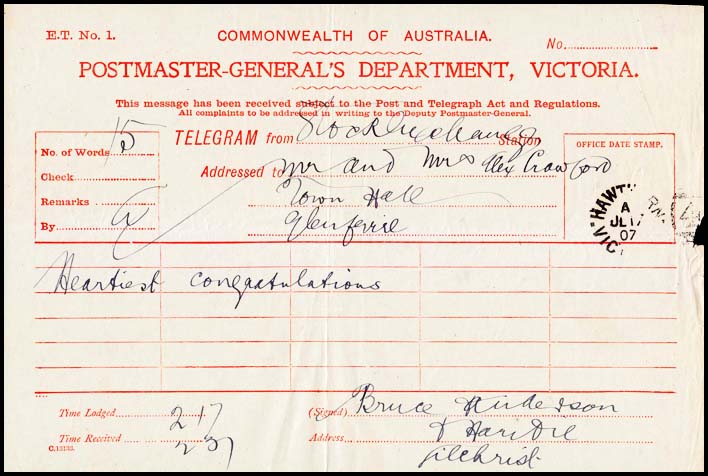 E.T. No. 1.
COMMONWEALTH OF AUSTRALIA.
No.
POSTMASTER-GENERAL'S DEPARTMENT, VICTORIA.
This message has been received subject to the Post and Telegraph Act and Regulations.
All complaints to be addressed in writing to the Deputy Postmaster-General.
TELEGRAM from Stock Exchange Station
No. of Words 15
Check
Remarks
By
Addressed to Mr and Mrs Alex Crawford
Town Hall
Glenferrie
OFFICE DATE STAMP.
HAWTHORN
A
JL 17
07
VIC
Heartiest congratulations
Time Lodged 2 17
Time Received 2 37
C.13133.
(Signed) Bruce Henderson
Address
Gilchrist